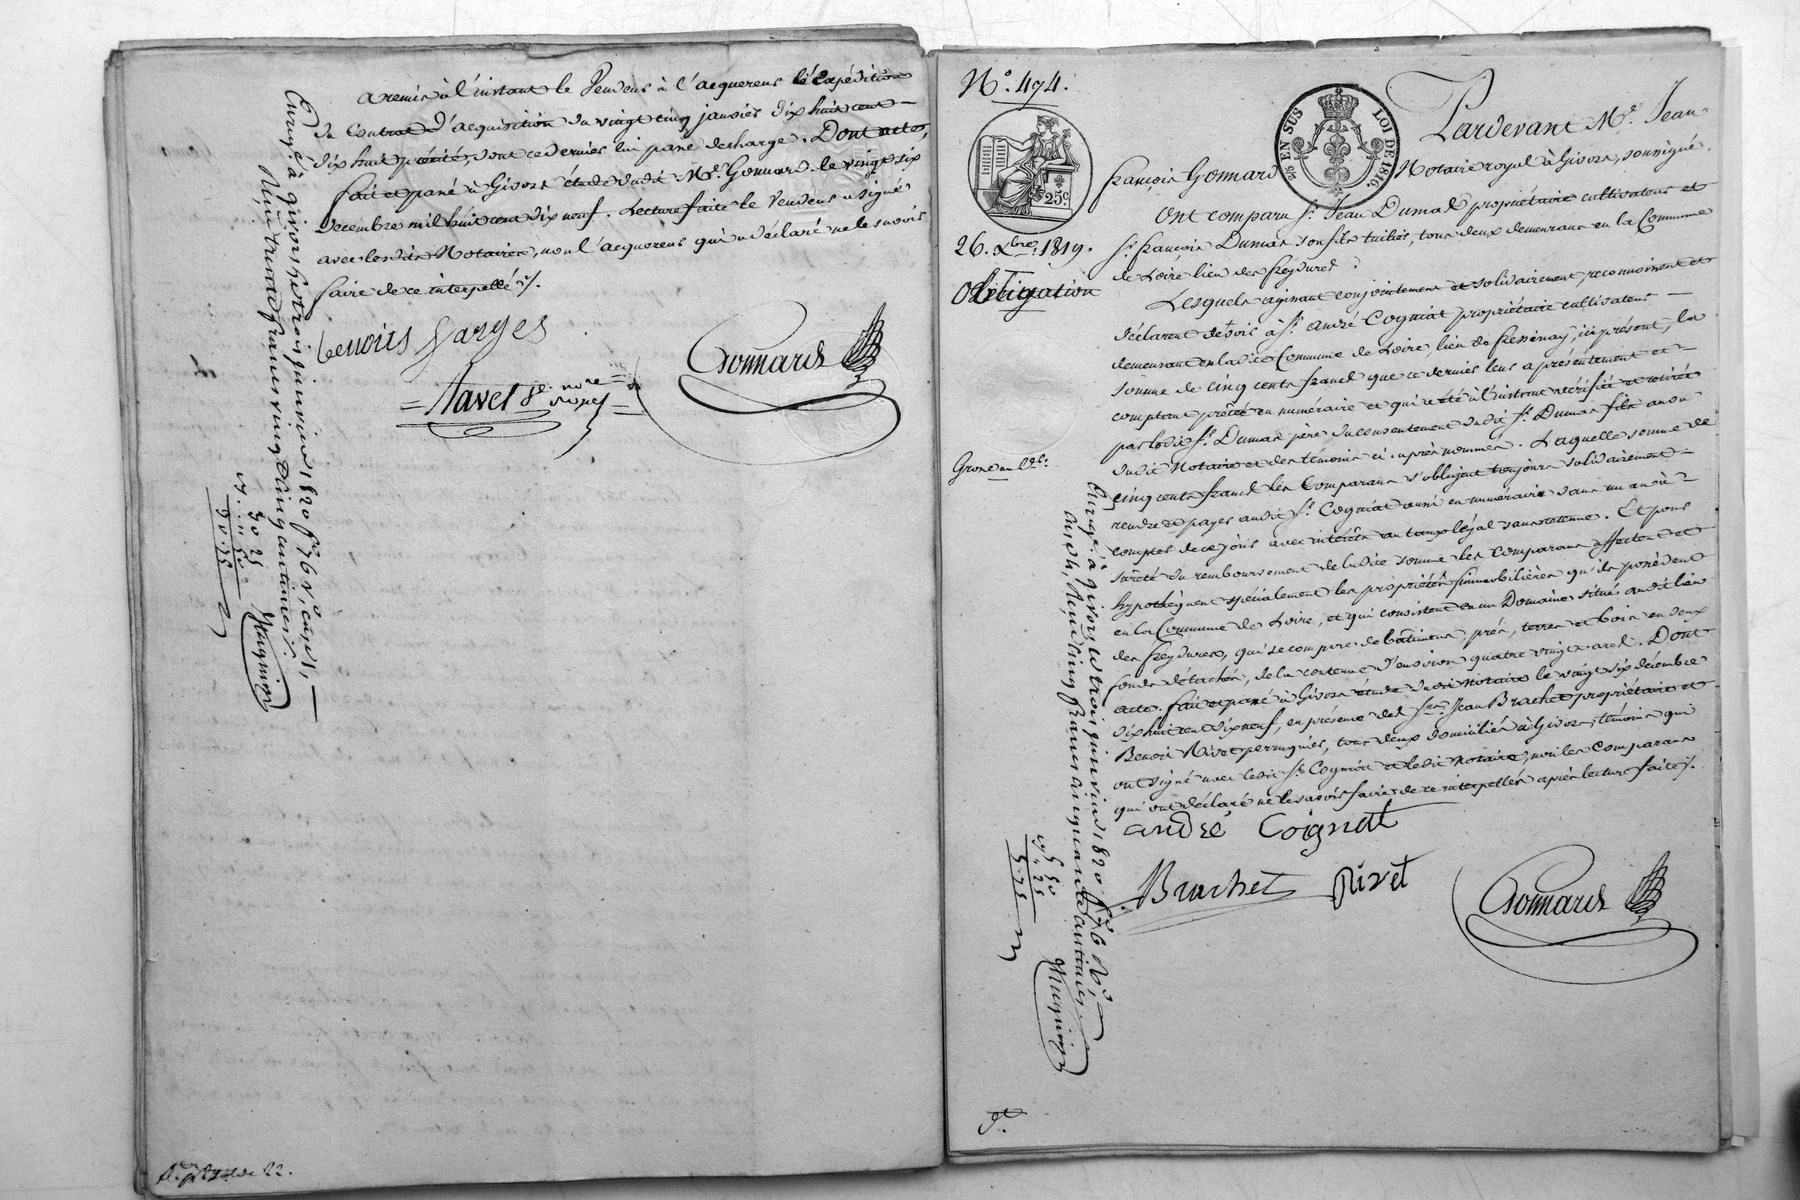 a remis à l'instant le Vendeur à l'acquereur l'expédition
du Contrat d'acquisition du vingt cinq janvier dix huit cent
dix huit précité, dont ce dernier lui passe decharge. Dont acte,
fait et passé à Givors étude dudit Me. Gonnard le vingt six
decembre mil huit cent dix neuf. Lecture faite le Vendeur a signé
avec lesdits Notaires, non l'acquereur qui a déclaré ne le savoir
faire de ce interpellé ./.
benoits garges
Navet
Gonnard
Enregé. à givors le trois janvier 1820 fo. 76 vo, case 1,
Reçu trente francs vingt cinq centimes
Mugnier
No. 474.
EN SUS
LOI DE 1816.
25c
26. Xbre. 1819.
Obligation
Grosse un Del.
Pardevant Me. Jean
François Gonnard Notaire royal à Givors, soussigné.
Ont comparu sr. Jean Dumas propriétaire cultivateur et
sr. françois Dumas son fils tuilier, tous deux demeurans en la Commune
de Loire lieu des freydures.
Lesquels agissant conjointement et solidairement, reconnoissent et
déclarent devoir à sr. André Cogniat propriétaire cultivateur
demeurant en ladite Commune de Loire, lieu de fressenay, ici présent, la
somme de cinq cents francs que ce dernier leur a présentement et
comptant prêtée en numéraire et qui a été à l'instant vérifiée et retirée
par ledit sr. Dumas père du consentement dudit sr. Dumas fils au vu
dudit Notaire et des témoins ci-après nommés. Laquelle somme de
cinq cents francs les Comparans s'obligent toujours solidairement
rendre et payer audit sr. Cogniat aussi en numéraire dans un an à
compter de ce jour avec intérêts au taux légal sans retenue. Et pour
sûreté du remboursement de ladite somme les comparans affectent et
hypothèquent spécialement les propriétés immobilières qu'ils possèdent
en la Commune de Loire, et qui consistent en un Domaine situé audit lieu
des freydures, qui se compose de bâtimens, prés, terres et bois en deux
fonds détachés, de la contenue d'environ quatre vingts ares. Dont
acte. fait et passé à Givors étude dudit Notaire le vingt six décembre
dix huit cent dix neuf, en présence des srs. Jean Brachet propriétaire et
Benoit Rivet perruquier, tous deux domiciliés à Givors, témoins qui
ont signé avec ledit sr. Cogniat et ledit Notaire, non les comparans
qui ont déclaré ne le savoir faire de ce interpellés après lecture faite ./.
andré Coignat
Brachet rivet
Gonnard
Enregé. à Givors le trois janvier 1820 fo. 76 Vo.,
case 4, Reçu cinq francs cinquante centimes
Mugnier